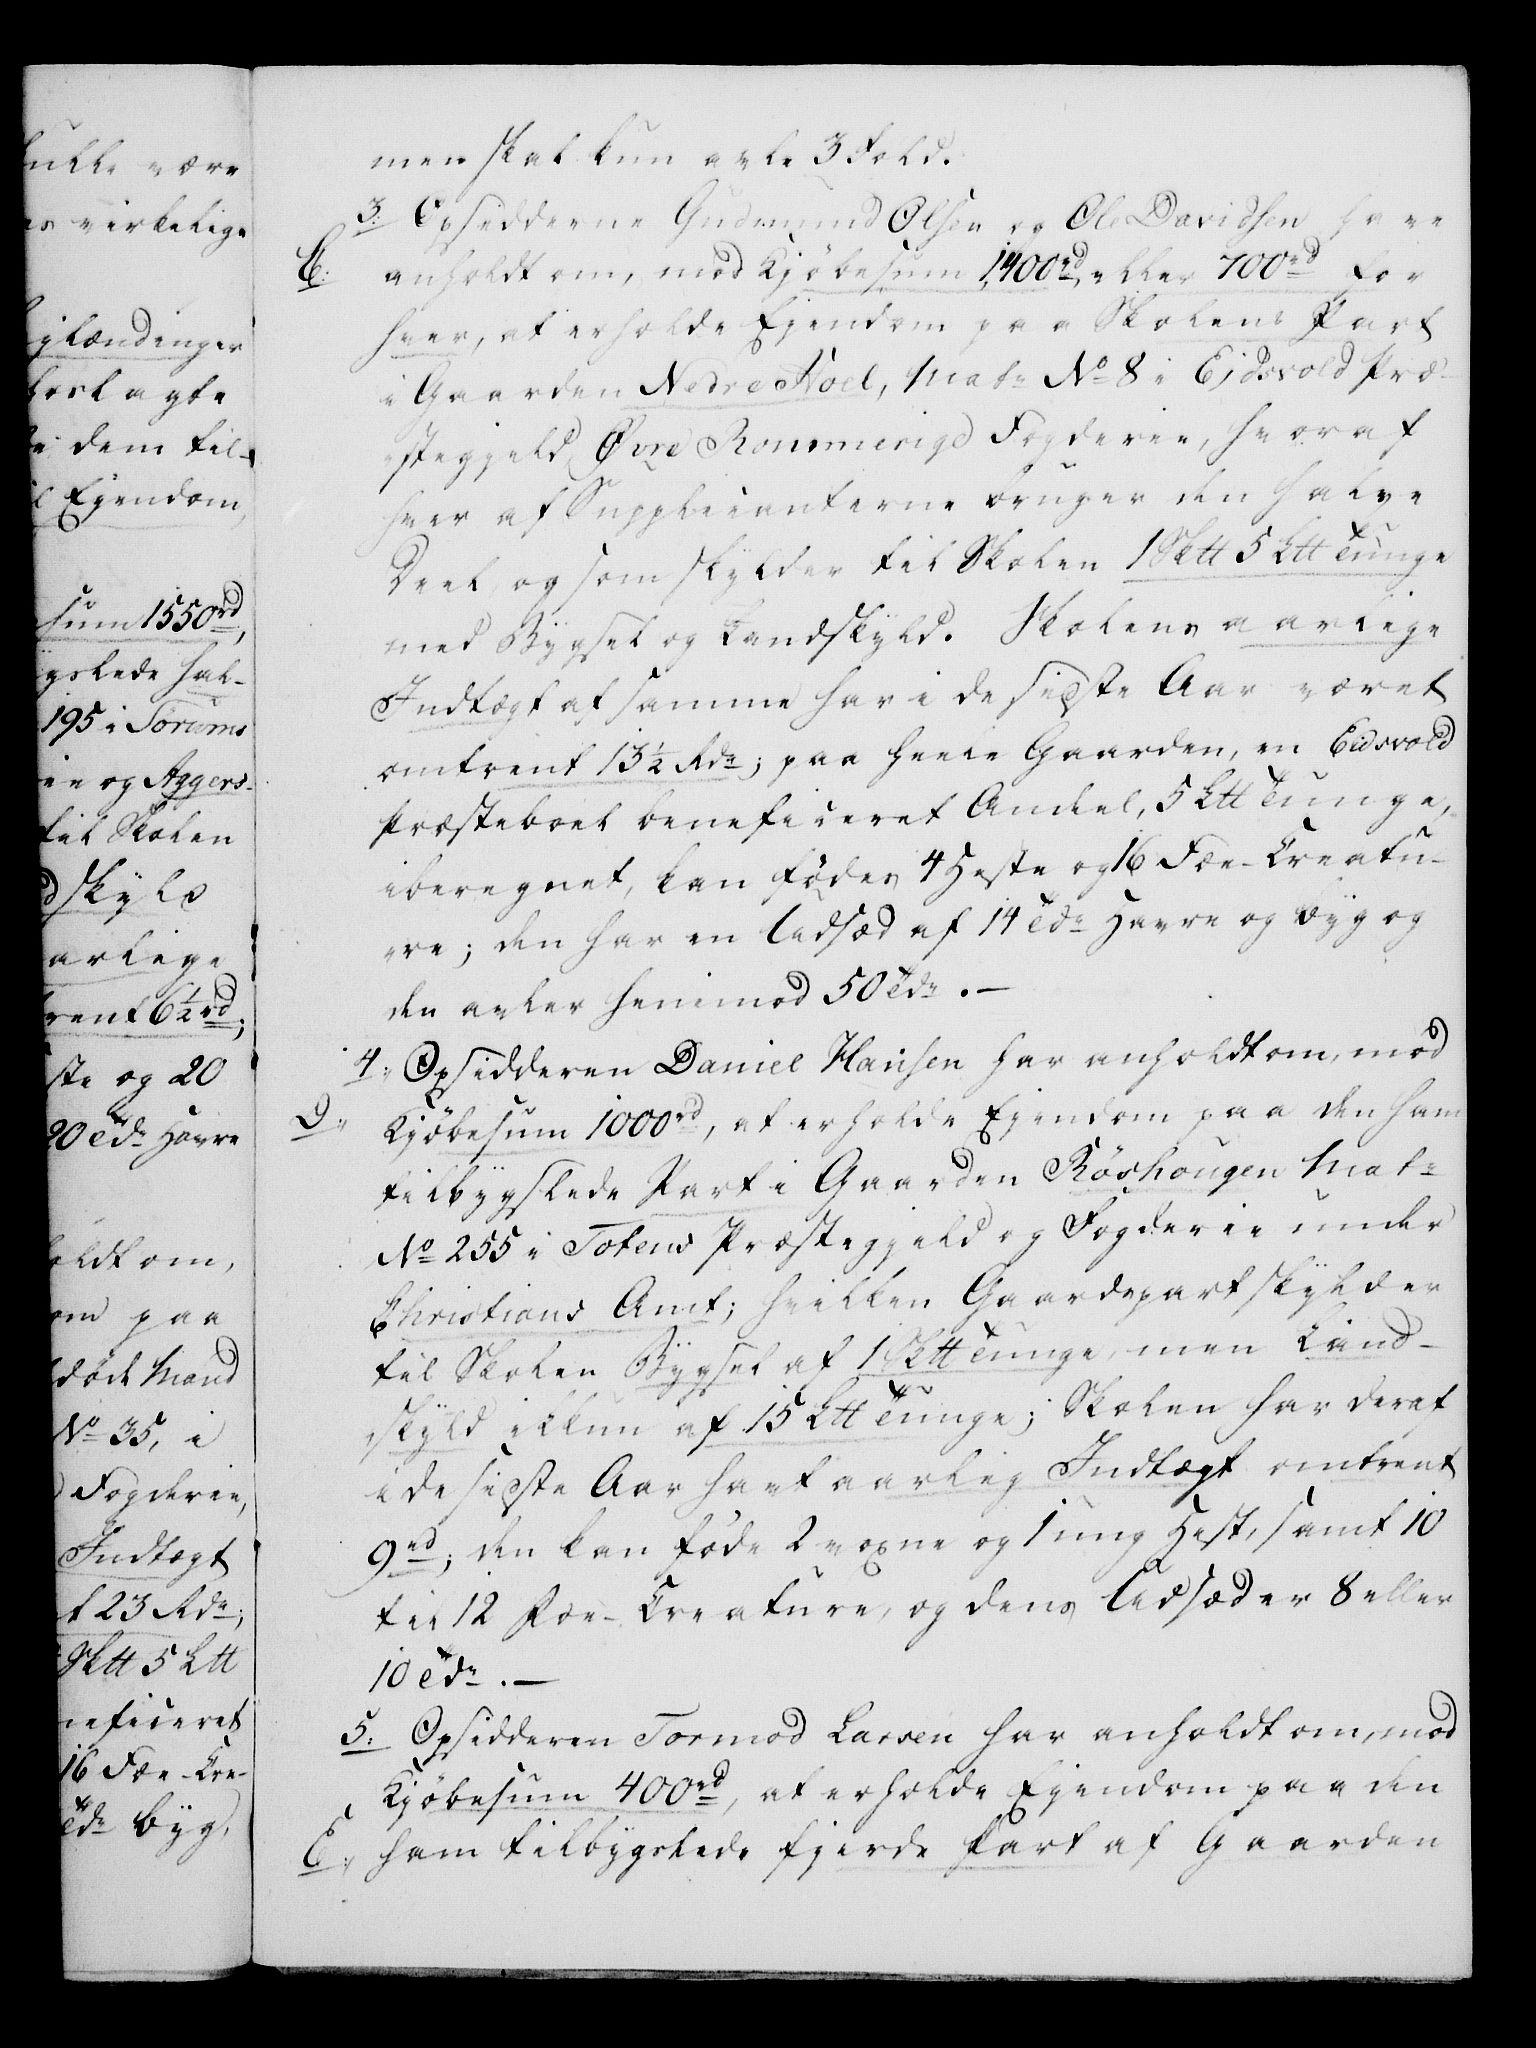 ulle være
es virkelige
glændinger
kostagte
e dem til-
l Ejendom,
sum 1550rd,
gslede hal-
195 i Sørums
ie og Aggers-
til Skolen
dskyld
arlige
rent 6½rd;
ste og 20
20 Tdr Havre
oldt om,
om paa
døde Mand
No 35, i
Fogderie,
Indtægt
t 23 Rdr;
Sktt 5 Ltt
neficeret
16 Fæe-Cre-
Tdr Byg,
men skal kun avle 3 Fold.
3. Opsidderne Gudmund Olsen og Ole Davidsen have
C: anholdt om, mod Kjøbesum 1400rd, eller 700rd for
hver, at erholde Ejendom paa Skolens Part
i Gaarden Nedre Hoel, Matr No 8 i Ejdsvold Præ-
stegjeld Øvre Rommerigs Fogderie, hvoraf
hver af Supplicanterne bruger den halve
Deel, og som skylder til Skolen 1 Sktt 5 Ltt Tunge
med Bygsel og Landskyld. Skolens aarlige
Indtægt af samme har i de sidste Aar været
omtrent 13½ Rdr; paa heele Gaarden, en Eidsvold
Præsteboel beneficeret Andeel, 5 Ltt Tunge,
iberegnet, kan fødes 4 Heste og 16 Fæe-Creatu-
re; den har en Udsæd af 14 Tdr Havre og Byg og
den avler henimod 50 Tdr. -
4. Opsidderen Daniel Hansen har anholdt om, mod
D., Kjøbesum 1000rd, at erholde Ejendom paa den ham
tilbygslede Part i Gaarden Röshougen Matr
No 255 i Totens Præstegjeld og Fogderie under
Christians Amt; hvilken Gaardepart skylder
til Skolen Bygsel af 1 Sktt Tunge, men Land-
skyld ikkun af 15 Ltt Tunge; Skolen har deraf
i de sidste Aar havt aarlig Indtægt omtrent
9rd; den kan føde 2 voxne og 1 ung Hest, samt 10
til 12 Fæe-Creature, og dens Udsæd er 8 eller
10 Tdr. -
5. Opsidderen Tormod Larsen har anholdt om, mod
Kjøbesum 400rd, at erholde Ejendom paa den
E., ham tilbygslede fjerde Part af Gaarden